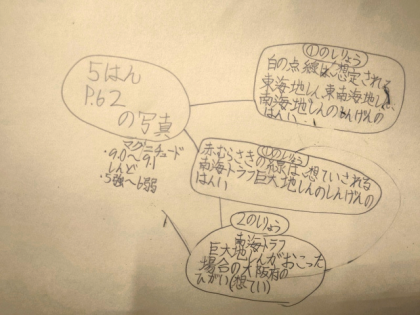 5はん
P.62
の写真
マグニチュード
・9.0〜9.1
しんど
・5強〜6弱
①のしりょう
白の点線は、想定される
東海地しん、東南海地しん、
南海地しんのしんげんの
はんい
①のしりょう
赤むらさきの線は、想ていされる
南海トラフ巨大地しんのしんげんの
はんい
2のしりょう
南海トラフ
巨大地しんがおこった
場合の大阪府の
ひがい(想てい)